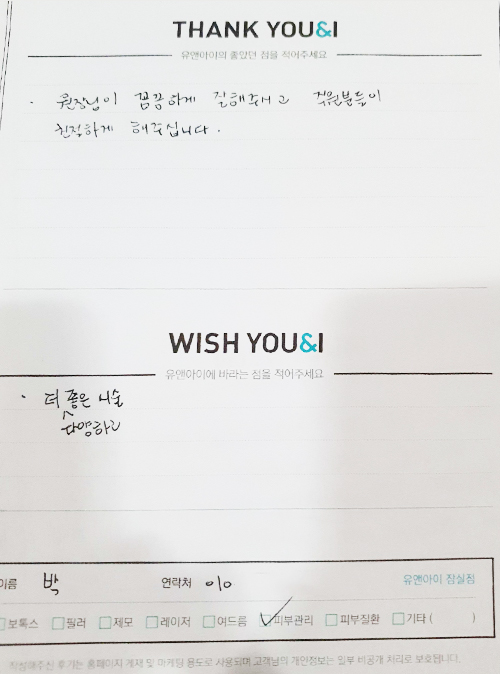 THANK YOU&I
유앤아이의 좋았던 점을 적어주세요
· 원장님이 꼼꼼하게 잘해주시고 직원분들이
친절하게 해주십니다.
WISH YOU&I
유앤아이에 바라는 점을 적어주세요
· 더 좋은 시술
다양하고
이름 박 연락처 010 유앤아이 잠실점
보톡스 필러 제모 레이저 여드름 피부관리 피부질환 기타 ( )
작성해주신 후기는 홈페이지 게재 및 마케팅 용도로 사용되며 고객님의 개인정보는 일부 비공개 처리로 보호됩니다.